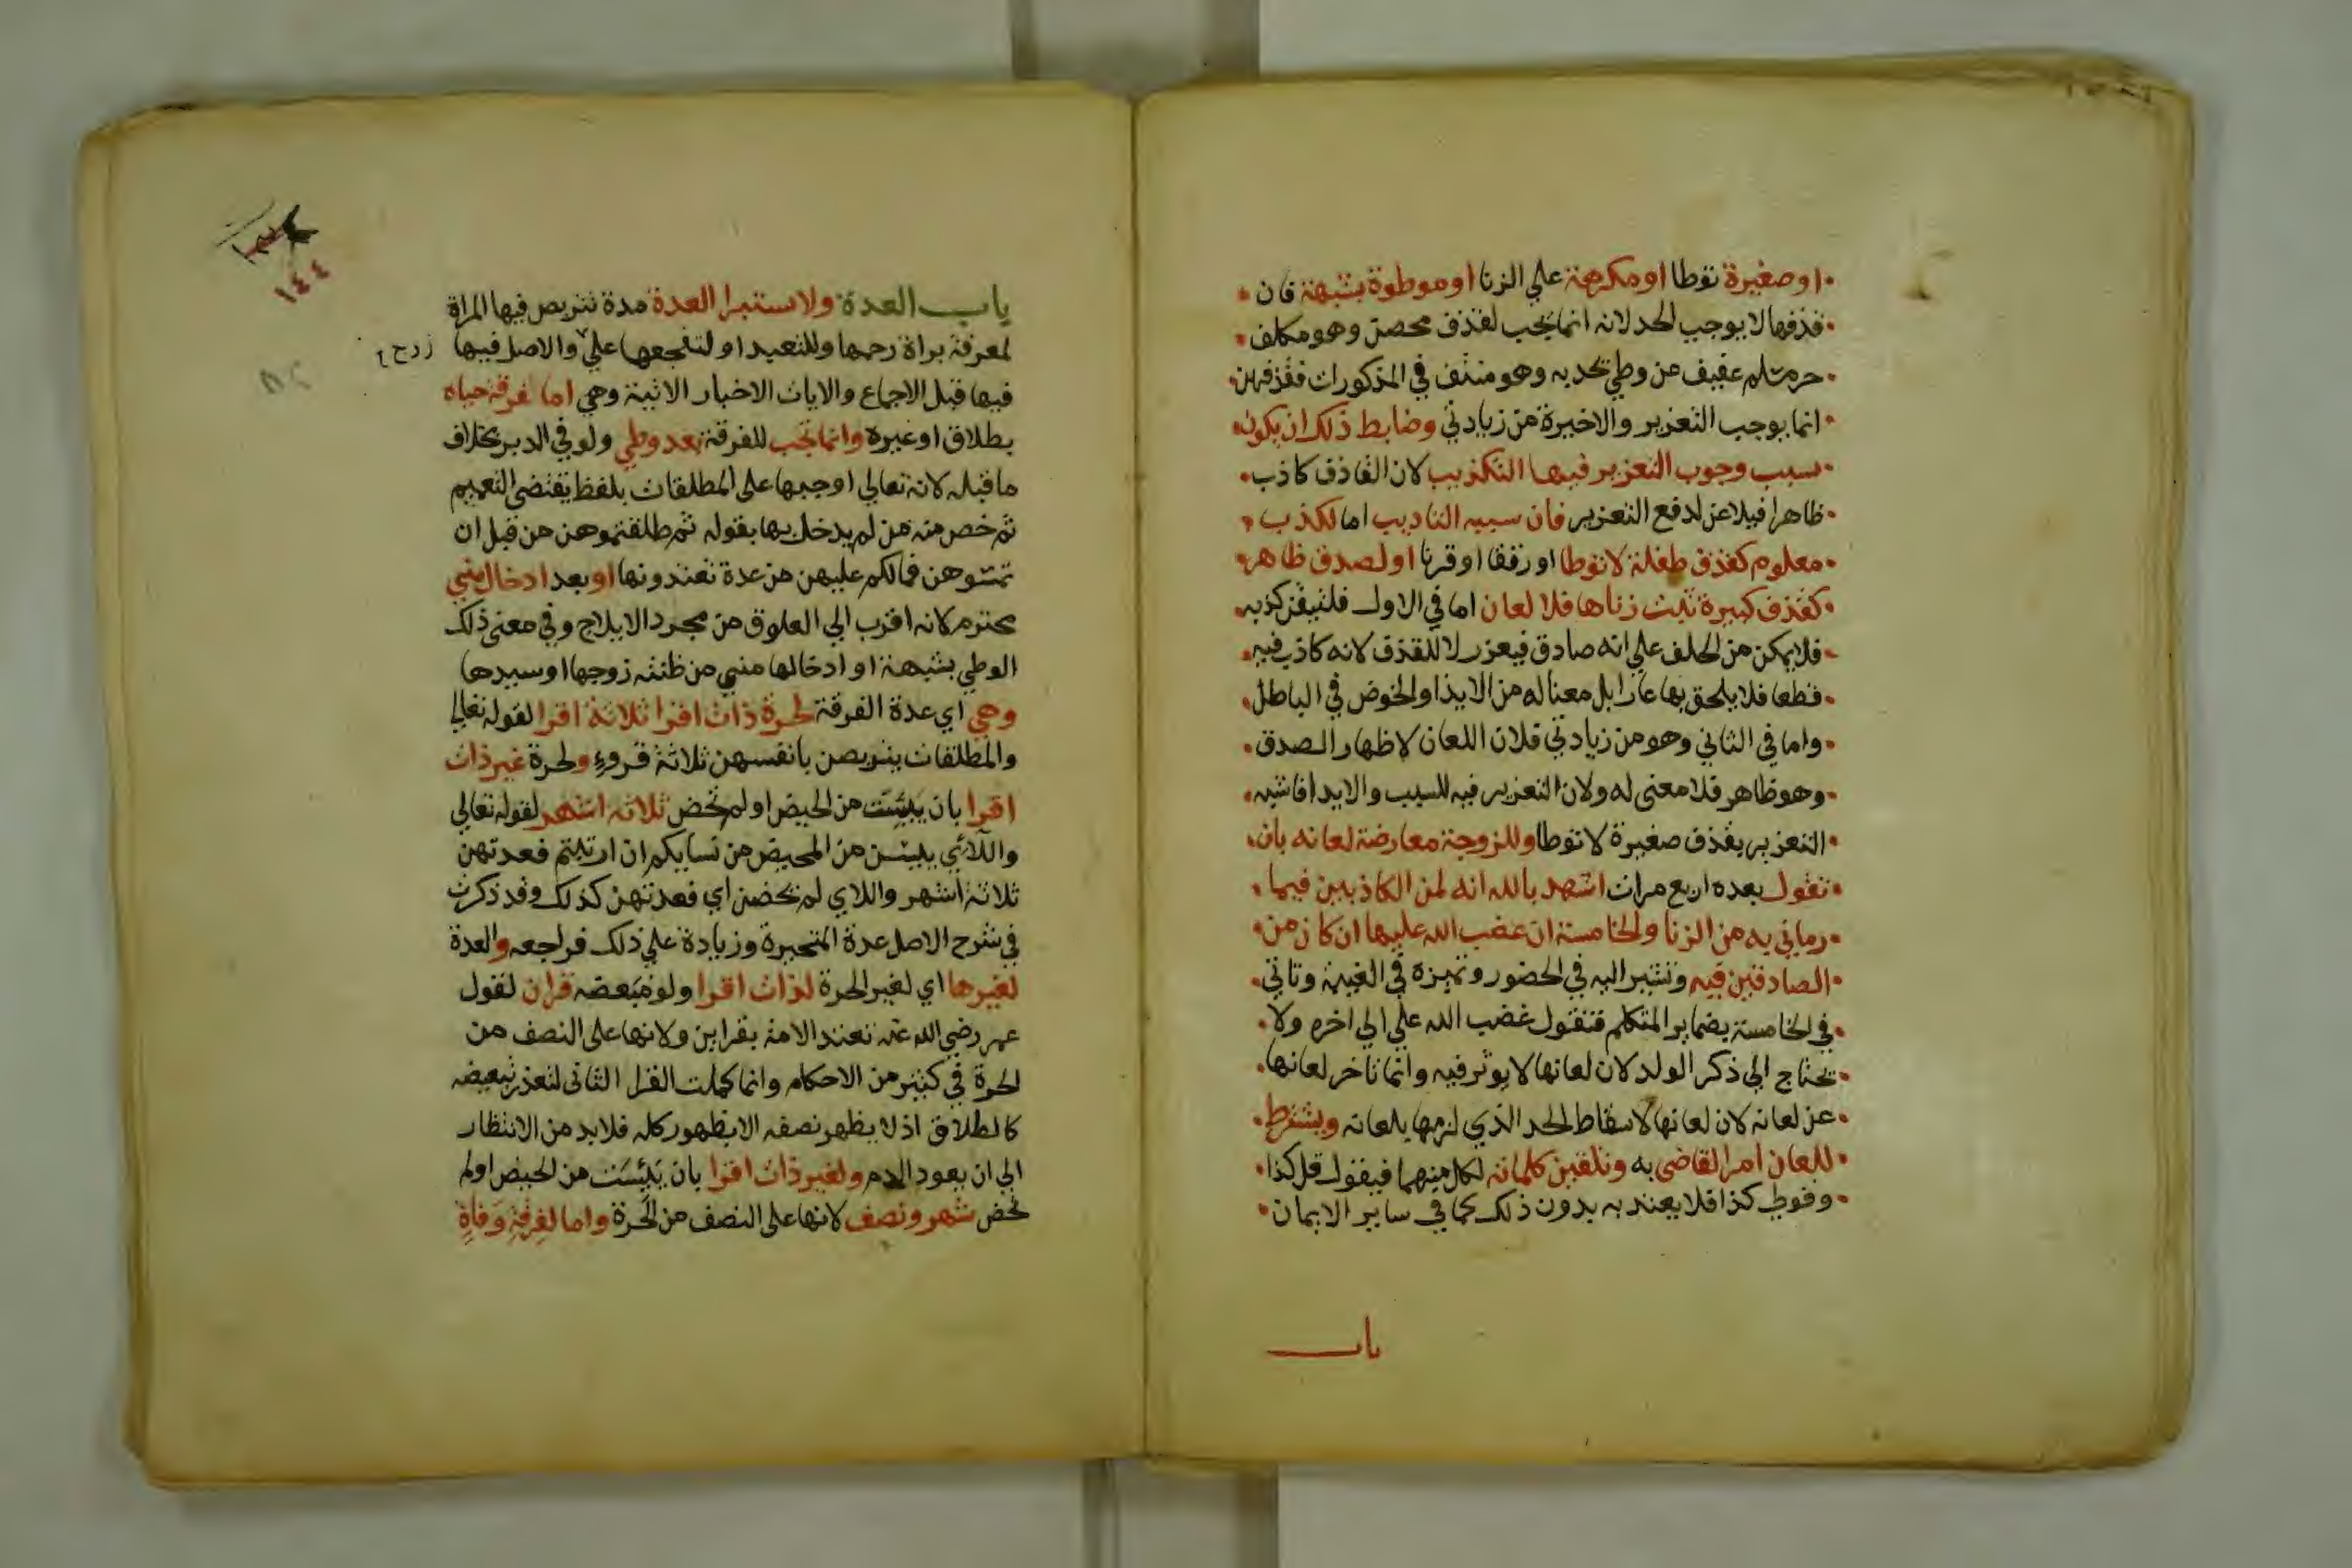 او صغيرة توطا او مكرهة علي الزنا او موطوة بشبهة فان
قذفها لا يوجب الحد لانه انما يجب لقذف محصن وهو مكلف
حر مسلم عفيف عن وطي يحد به وهو منتف في المذكورات فقذفهن
انما يوجب التعزير والاخيرة من زيادتي وضابط ذلك ان يكون
سبب وجوب التعزير فيها التكذيب لان القاذف كاذب
ظاهرا فيلاعن لدفع التعزير فان سببه التاديب اما لكذب
معلوم كقذف طفلة لا توطا او رتقا او قرنا او لصدق ظاهر
كقذف كبيرة ثبت زناها فلا لعان اما في الاول فلتيقن كذبه
فلا يمكن من الحلف علي انه صادق فيعزر لا للقذف لانه كاذب فيه
قطعا فلا يلحق بها عارا بل معناله من الايذا والخوض في الباطل
واما في الثاني وهو من زيادتي فلان اللعان لاظهار الصدق
وهو ظاهر فلا معنى له ولان التعزير فيه للسب والايذا فاشبه
التعزير بقذف صغيرة لا توطا وللزوجة معارضة لعانه بان
تقول بعده اربع مرات اشهد بالله انه لمن الكاذبين فيما
رماني به من الزنا والخامسة ان غضب الله عليها ان كان من
الصادقين فيه وتشير اليه في الحضور وتميزه في الغيبة وتاتي
في الخامسة بضماير المتكلم فتقول غضب الله علي الي اخره ولا
تحتاج الي ذكر الولد لان لعانها لا يوثر فيه وانما تاخر لعانها
عن لعانه لان لعانها لاسقاط الحد الذي لزمها بلعانه ويشترط
للعان امر القاضي به وتلقين كلماته لكل منهما فيقول قل كذا
وقولي كذا فلا يعتد به بدون ذلك كما في ساير الايمان
باب
١٤٤
باب العدة ولاستبرا العدة مدة تتربص فيها المراة
لمعرفة براة رحمها وللتعبد او لتفجعها علي والاصل فيها
فيها قبل الاجماع والايات الاخبار الاتية وهي اما لفرقة حياه
بطلاق او غيره وانما تجب للفرقة بعد وطي ولو في الدبر بخلاف
ما قبله لانه تعالي اوجبها على المطلقات بلفظ يقتضى التعميم
ثم خص منه من لم يدخل بها بقوله ثم طلقتموهن من قبل ان
تمسوهن فما لكم عليهن من عدة تعتدونها او بعد ادخال مني
محترم كانه اقرب الي العلوق من مجرد الايلاج وفي معنى ذلك
الوطي بشبهة او ادخالها مني من ظنته زوجها او سيدها
وهي اي عدة الفرقة لحرة ذات اقرا ثلاثة اقرا لقوله تعالي
والمطلقات يتربصن بانفسهن ثلاثة قروء ولحرة غير ذات
اقرا بان يئست من الحيض او لم تحض ثلاثه اشهر لقوله تعالي
واللائي يئسن من المحيض من نسايكم ان ارتبتم فعدتهن
ثلاثة اشهر واللاي لم يحضن اي فعدتهن كذلك وقد ذكرت
في شرح الاصل عدة المتحيرة وزيادة علي ذلك فراجعه والعدة
لغيرها اي لغير الحرة لذات اقرا ولو مبعضه قران لقول
عمر رضي الله عنه تعتد الامة بقراين ولانها على النصف من
الحرة في كثير من الاحكام وانما كملت القرا الثاني لتعذر تبعيضه
كالطلاق اذ لا يظهر نصفه الا بظهور كله فلا بد من الانتظار
الي ان يعود الدم ولغير ذات اقرا بان يئست من الحيض او لم
تحض شهر ونصف لانها على النصف من الحرة واما لفرقة وفاة